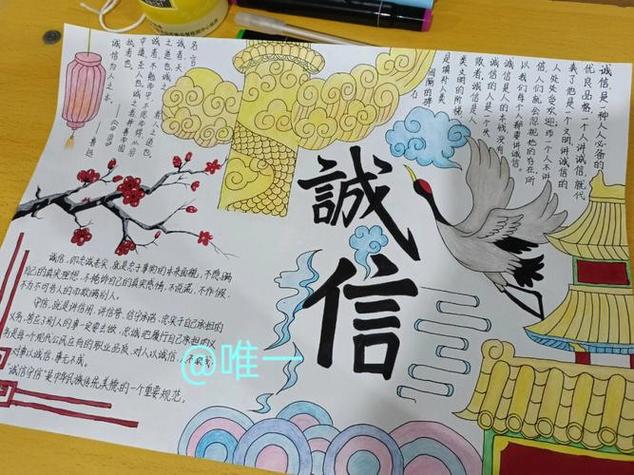 名言
诚者,天
之道也,诚之
者,人之道也。
诚者不勉而中不思而得,从容
中道,圣人也。诚之者,择善而固
执者也。
——《中庸》
诚信为人之本。
——鲁迅
诚信是一种人人必备的
优良品格,一个人讲诚信,就代
表了他是一个文明讲诚信的
人,处处受欢迎;一个人不讲
信,人们就会忽视他的存在,所
以我们每个人都要讲诚信。
诚信是人的本钱,没有
诚信的人是一个失
败者,诚信是人
类文明的阶梯,
是填补人类
间隔的砖
誠信
诚信,即忠诚老实,就是忠于事物的本来面貌,不隐瞒
自己的真实思想,不掩饰自己的真实感情,不说谎,不作假,
不为不可告人的目的欺瞒别人。
守信,就是讲信用,讲信誉,信守承诺,忠实于自己承担的
义务,答应了别人的事一定要去做,忠诚地履行自己承担的义
务是每个现代公民应有的职业品质,对人以诚信,人不欺我;
对事以诚信,事无不成。
"诚信守信"是中华民族传统美德的一个重要规范。
@唯一